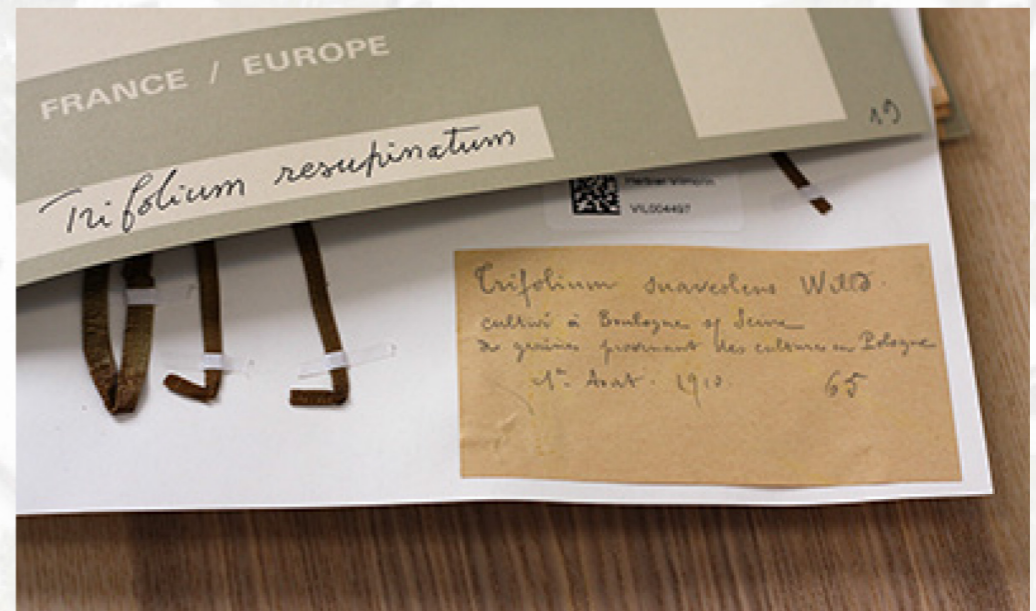 FRANCE / EUROPE
Trifolium resupinatum
19
Herbier Vilmorin
VIL004497
Trifolium suaveolens Willd.
cultivé à Boulogne s/ Seine
de graines provenant des cultures en Pologne
1er Août. 1910. 65